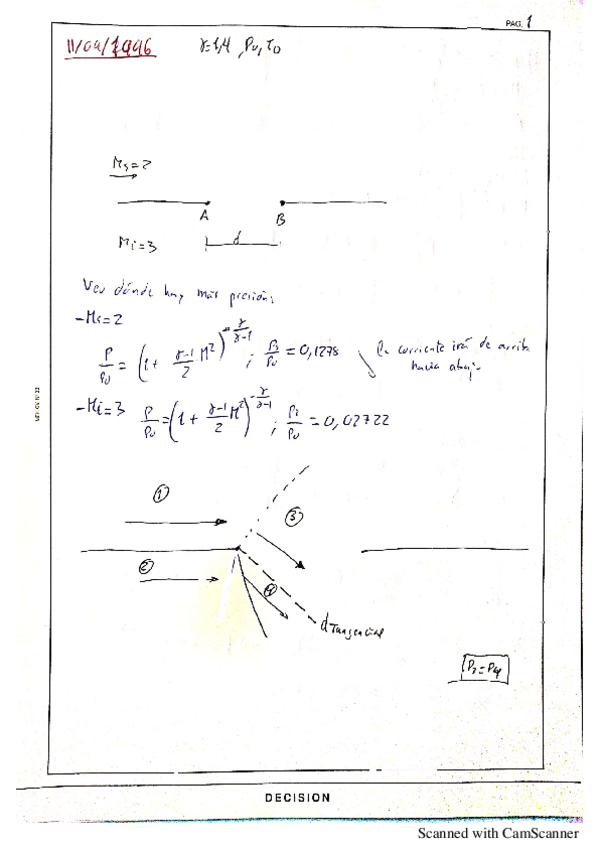 PAG. 1
11/09/1996 γ=1,4 , P₀, T₀
Ms=2
A B
Mi=3 d
Ver dónde hay más presión:
-Ms=2
P/P₀ = (1+ γ-1/2 M²)^-γ/γ-1 ; Ps/P₀ = 0,1278 La corriente irá de arriba
hacia abajo
-Mi=3 P/P₀ = (1 + γ-1/2 M²)^-γ/γ-1 ; Pi/P₀ = 0,02722
①
③
②
④
d Tangencial
P₃=P₄
DECISION
Scanned with CamScanner